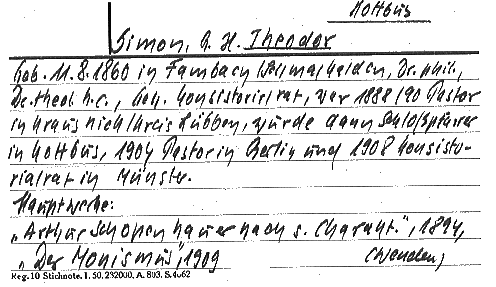 Kottbus
Simon, G. H. Theodor
Geb. 11. 8. 1860 in Fambach/Schmalkalden, Dr. phil.,
Dr. theol. h. c., Geh. Konsistorialrat, war 1888/90 Pastor
in Krausnick/Kreis Lübben, wurde dann Schloßpfarrer
in Kottbus, 1904 Pastor in Berlin und 1908 Konsisto-
rialrat in Münster.
Hauptwerke:
„Arthur Schopenhauer nach s. Charakt.", 1894,
„Der Monismus", 1909
(wenden)
Reg. 10 Stichnote. 1. 50. 232000. A. 803. S. 4062